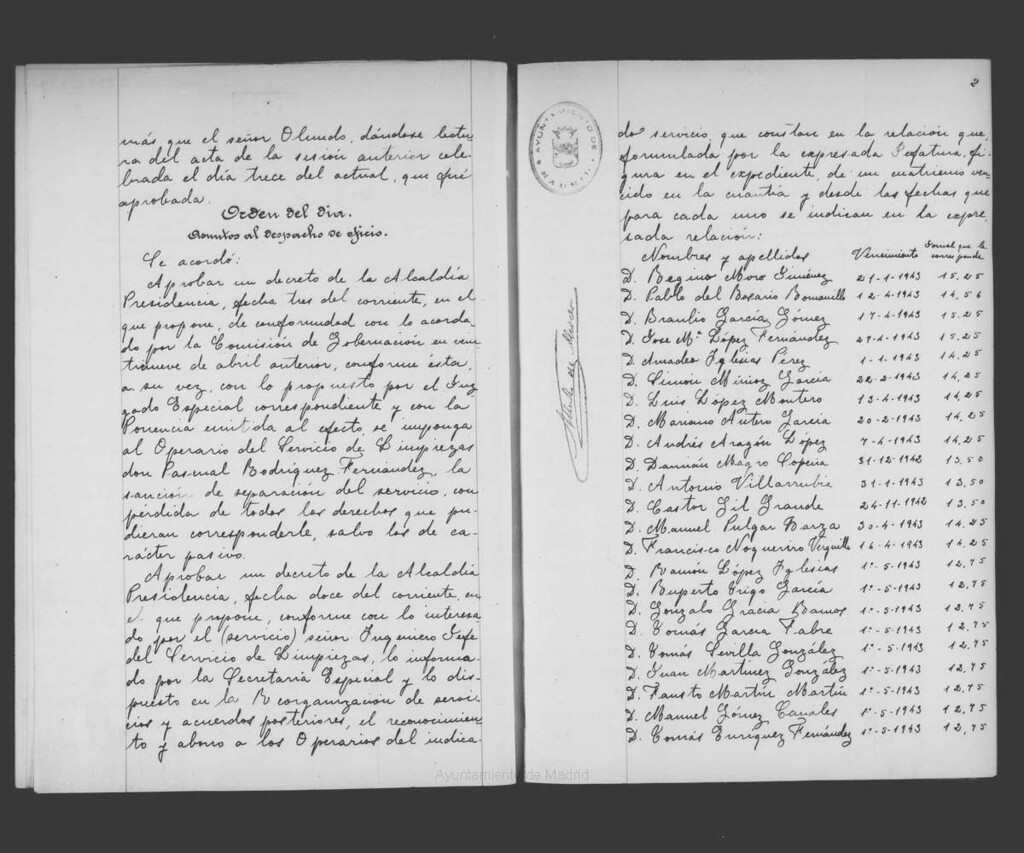 más que el señor Olmedo, dándose lectu-
ra del acta de la sesión anterior cele-
brada el día trece del actual, que fué
aprobada.
Orden del día.
Asuntos al despacho de oficio.
Se acordó:
Aprobar un decreto de la Alcaldía
Presidencia, fecha tres del corriente, en el
que propone, de conformidad con lo acorda-
do por la Comisión de Gobernación en vein-
tinueve de abril anterior, conforme ésta,
a su vez, con lo propuesto por el Juz-
gado Especial correspondiente y con la
Ponencia emitida al efecto, se imponga
al Operario del Servicio de Limpiezas
don Pascual Rodríguez Fernández, la
sanción de separación del servicio, con
pérdida de todos los derechos que pu-
dieran corresponderle, salvo los de ca-
rácter pasivo.
Aprobar un decreto de la Alcaldía
Presidencia, fecha doce del corriente, en
el que propone, conforme con lo interesa-
do por el (servicio) señor Ingeniero Jefe
del Servicio de Limpiezas, lo informa-
do por la Secretaría Especial y lo dis-
puesto en la Reorganización de servi-
cios y acuerdos posteriores, el reconocimien-
to y abono a los Operarios del indica-
2
AYUNTAMIENTO DE MADRID
do servicio, que constan en la relación que,
formulada por la expresada Jefatura, fi-
gura en el expediente, de un cuatrienio ven-
cido en la cuantía y desde las fechas que
para cada uno se indican en la expre-
sada relación:
Nombres y apellidos Vencimiento Jornal que le corresponde
D. Regino Moro Jiménez 29-1-1943 15,25
D. Pablo del Rosario Bomanillo 12-4-1943 14,56
D. Braulio García Gómez 17-4-1943 15,25
D. Jose Mª López Fernández 29-4-1943 15,25
D. Amadeo Iglesias Pérez 1-1-1943 14,25
D. Simón Muñoz García 22-2-1943 14,25
D. Luis López Montero 13-4-1943 14,25
D. Mariano Antero García 20-2-1943 14,25
D. Andrés Aragón López 7-4-1943 14,25
D. Damián Magro Copeña 31-12-1942 13,50
D. Antonio Villarrubia 31-1-1943 13,50
D. Castor Gil Grande 24-11-1942 13,50
D. Manuel Pulgar Barza 30-4-1943 14,25
D. Francisco Nogueriro Verguilla 16-4-1943 14,25
D. Ramón López Iglesias 1º-5-1943 12,75
D. Ruperto Trigo García 1º-5-1943 12,75
D. Gonzalo Gracia Ramos 1º-5-1943 12,75
D. Tomás García Fabre 1º-5-1943 12,75
D. Tomás Sevilla González 1º-5-1943 12,75
D. Juan Martínez González 1º-5-1943 12,75
D. Fausto Martín Martín 1º-5-1943 12,75
D. Manuel Gómez Canales 1º-5-1943 12,75
D. Tomás Enríquez Fernández 1º-5-1943 12,75
Ayuntamiento de Madrid